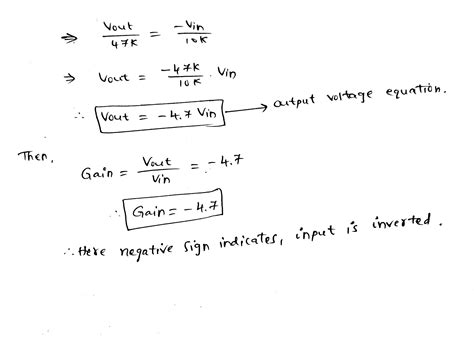 ⇒ Vout/47K = -Vin/10K
⇒ Vout = -47K/10K . Vin
∴ Vout = -4.7 Vin → output voltage equation.
Then,
Gain = Vout/Vin = -4.7
∴ Gain = -4.7
∴ Here negative sign indicates, input is inverted.